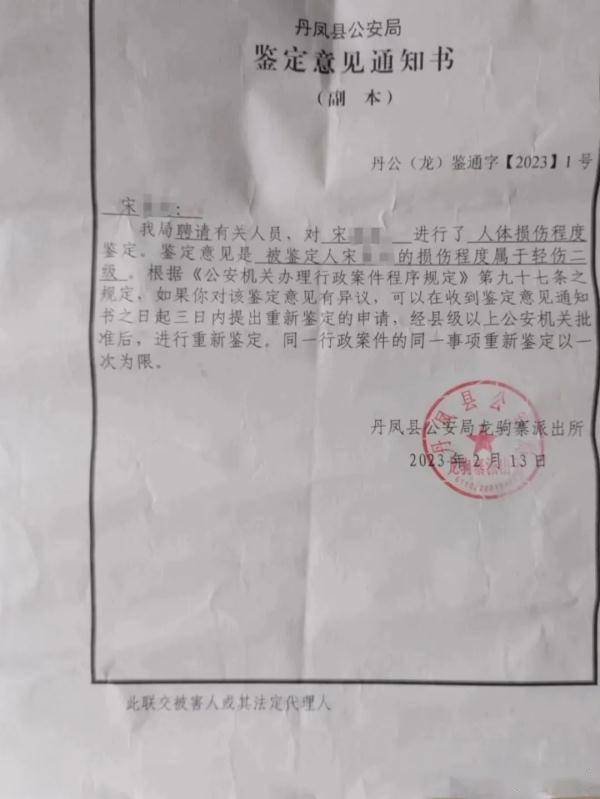 丹凤县公安局
鉴定意见通知书
（副 本）
丹公（龙）鉴通字【2023】1号
宋
：
我局聘请有关人员，对 宋
进行了 人体损伤程度
鉴定。鉴定意见是 被鉴定人宋
的损伤程度属于轻伤二
级。根据《公安机关办理行政案件程序规定》第九十七条之
规定，如果你对该鉴定意见有异议，可以在收到鉴定意见通知
书之日起三日内提出重新鉴定的申请，经县级以上公安机关批
准后，进行重新鉴定，同一行政案件的同一事项重新鉴定以一
次为限。
丹凤县公安局龙驹寨派出所
2023年2月13日
丹凤县公
龙驹寨派出
此联交被害人或其法定代理人